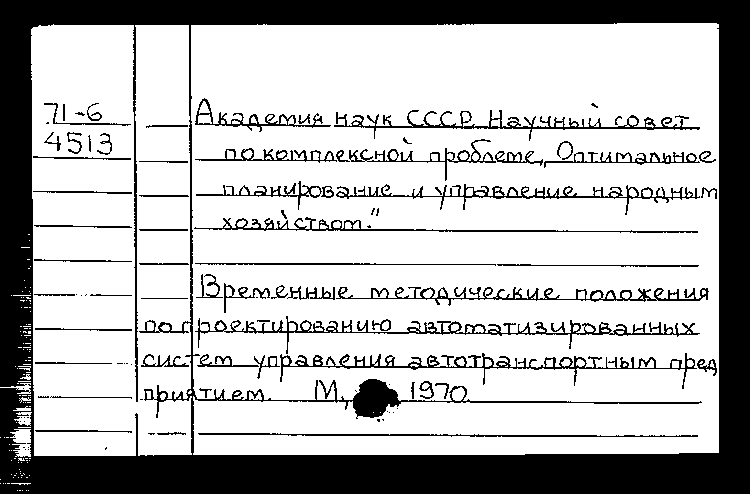 71-6
4513
Академия наук СССР. Научный совет
по комплексной проблеме „Оптимальное
планирование и управление народным
хозяйством."
Временные методические положения
по проектированию автоматизированных
систем управления автотранспортным пред
приятием. М., 1970